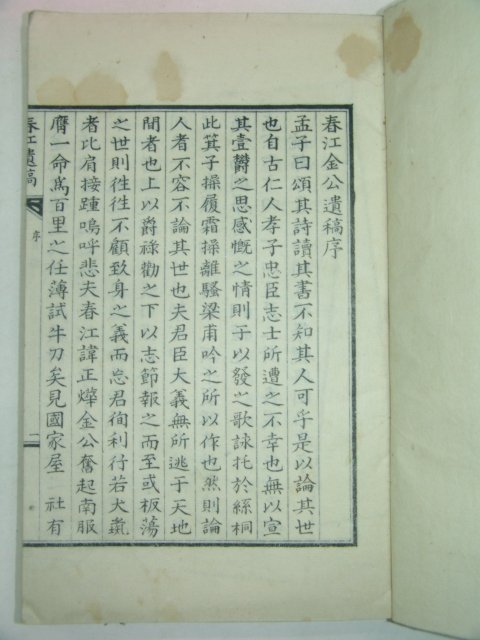 春江金公遺稿序
孟子曰頌其詩讀其書不知其人可乎是以論其世
也自古仁人孝子忠臣志士所遭之不幸也無以宣
其壹鬱之思感慨之情則于以發之歌詠托於絲桐
此箕子操履霜操離騷梁甫吟之所以作也然則論
人者不容不論其世也夫君臣大義無所逃于天地
間者也上以爵祿勸之下以志節報之而至或板蕩
之世則往往不顧致身之義而忘君徇利行若犬彘
者比肩接踵嗚呼悲夫春江諱正燁金公奮起南服
膺一命爲百里之任薄試牛刀矣見國家屋 社有
春江遺稿
序
二